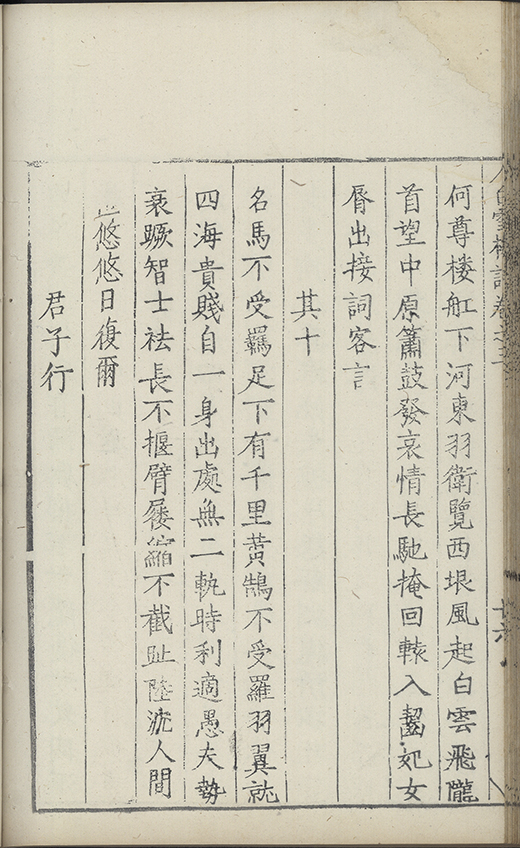 白雪樓詩卷之三
何尊楼舡下河東羽衛覽西垠風起白雲飛隴
首望中原簫鼓發哀情長馳掩回轅入齧妃女
脣出接詞客言
其十
名馬不受羈足下有千里黃鵠不受羅羽翼就
四海貴賤自一身出處無二軌時利適愚夫勢
衰蹶智士袪長不揠臂屨縮不截趾陸沈人間
悠悠日復爾
君子行